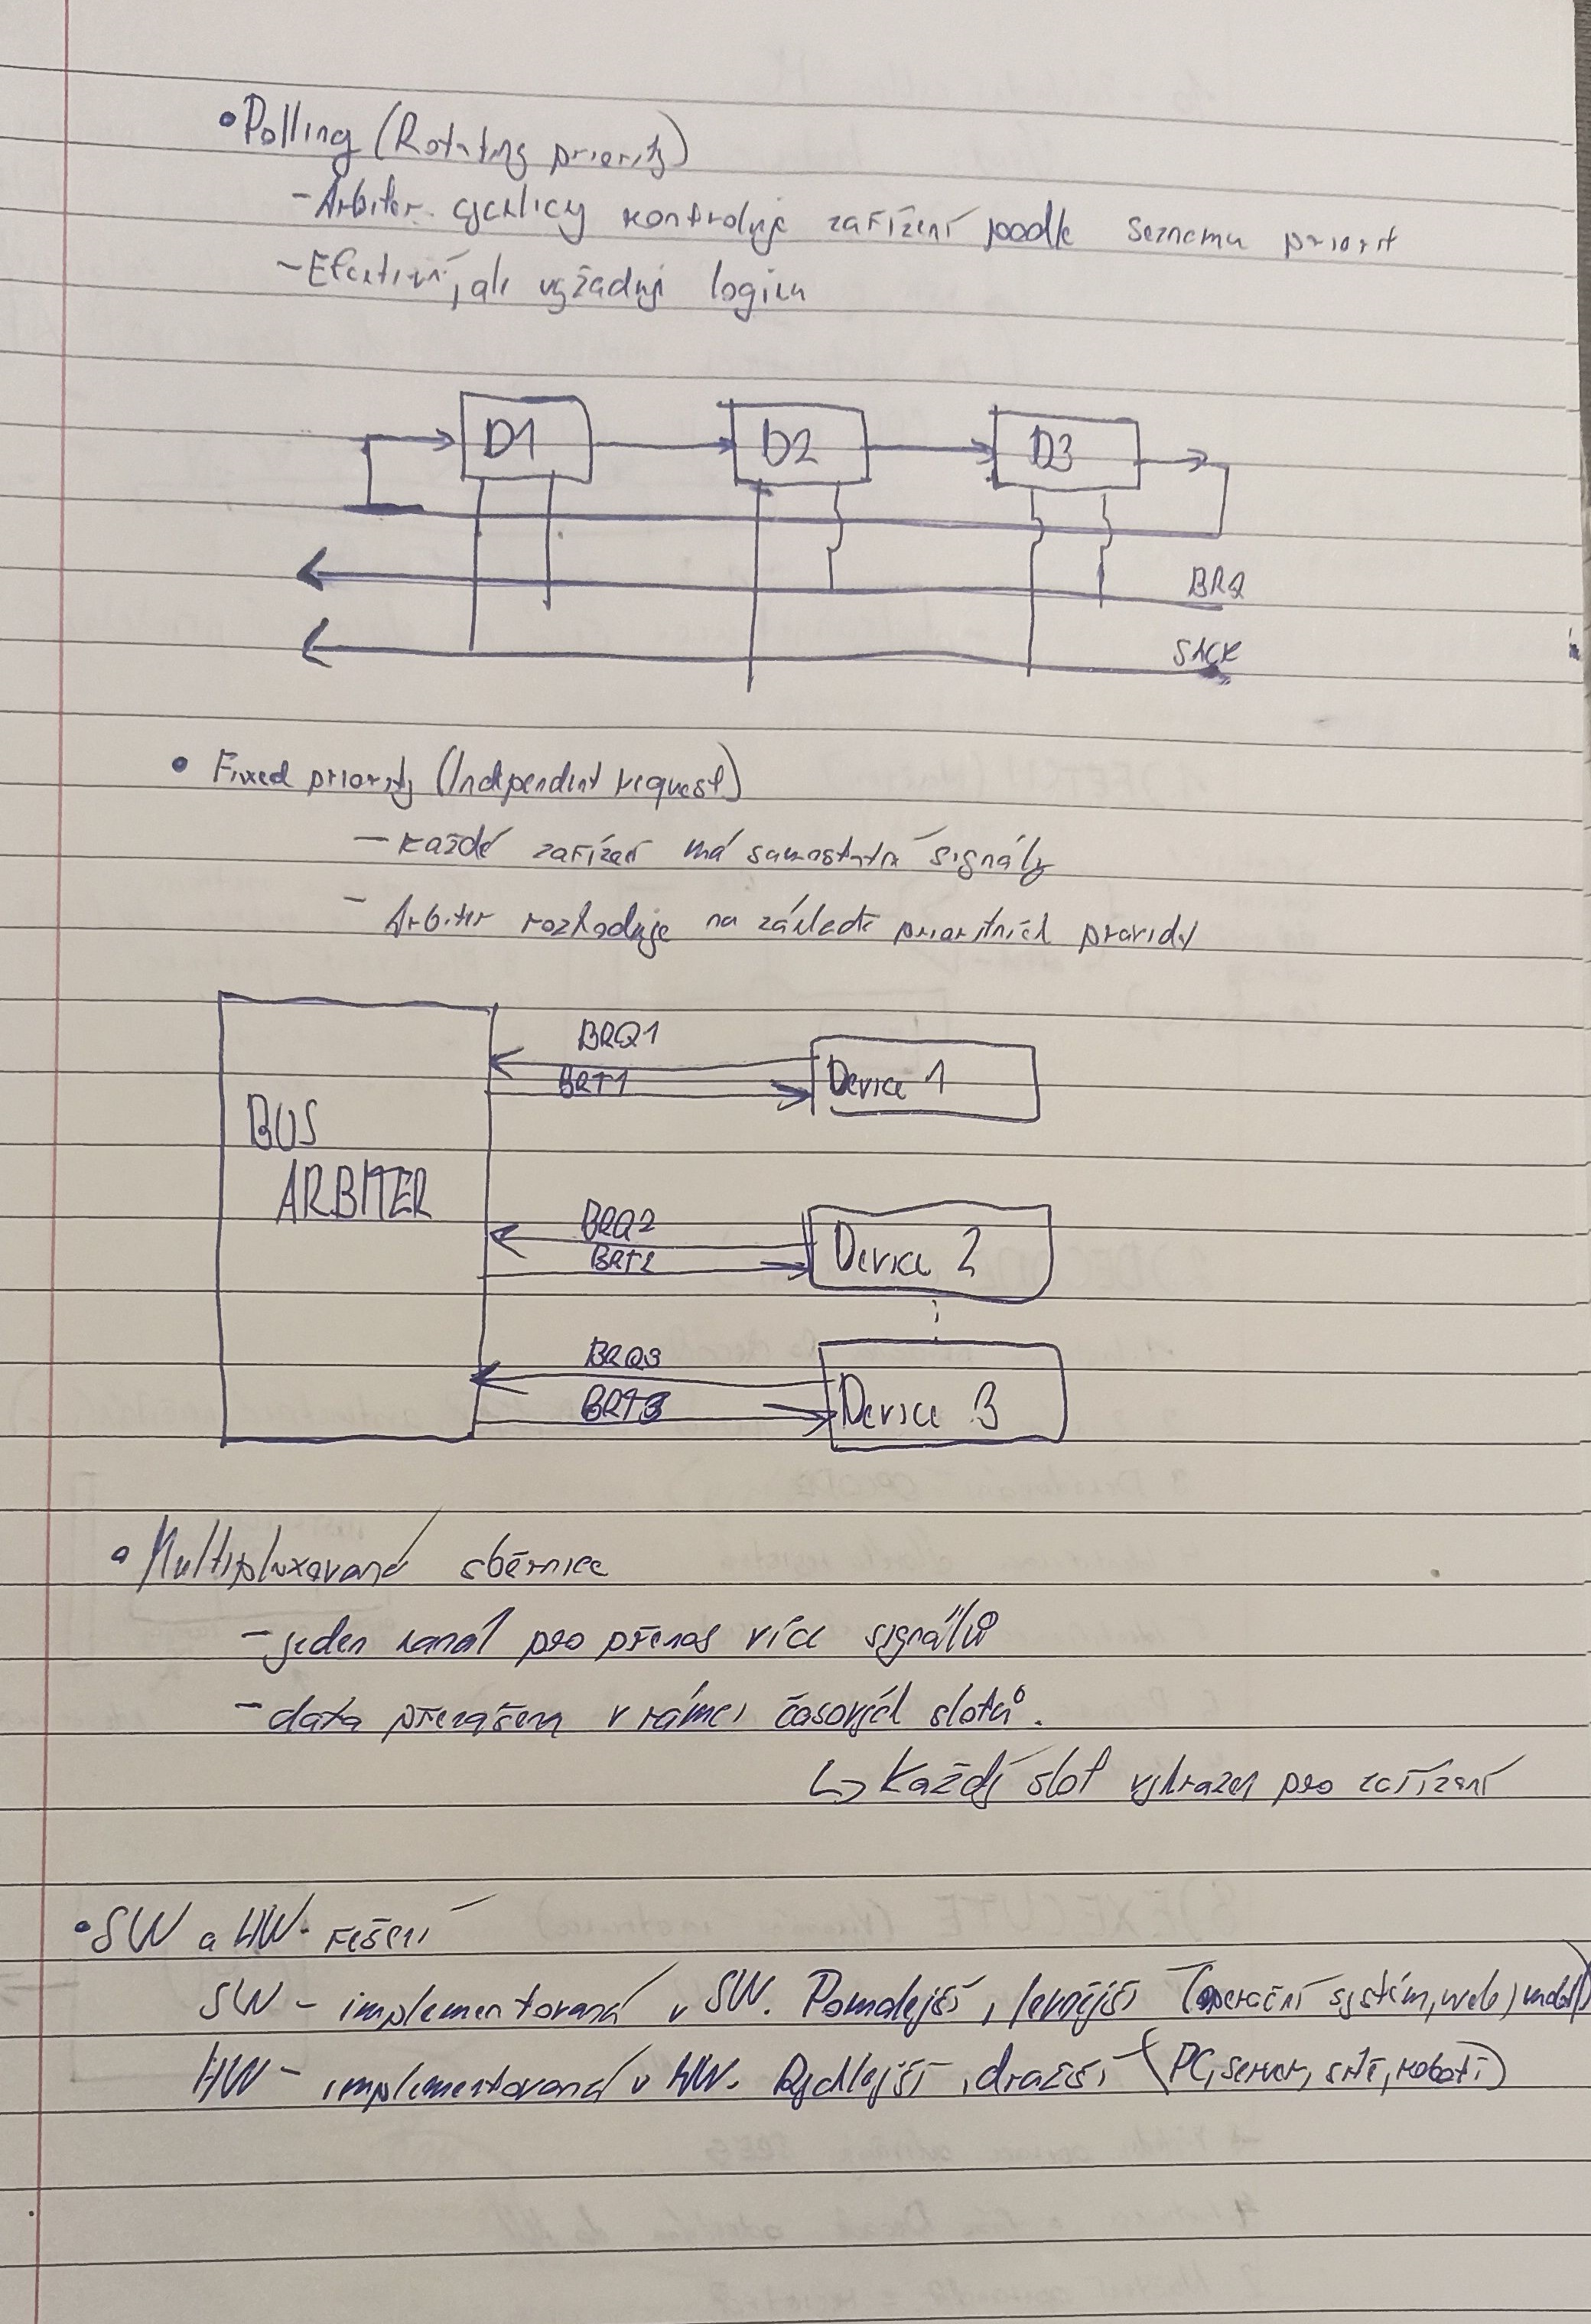 • Polling (Rotating priority)
- Arbiter cyklicky kontroluje zařízení podle seznamu priorit
- Efektivní, ale vyžaduje logiku
D1 D2 D3
BRQ
SACK
• Fixed priority (Independent request)
- každé zařízení má samostatné signály
- Arbiter rozhoduje na základě prioritních pravidel
BRQ1
BRT1 Device 1
BUS
ARBITER
BRQ2
BRT2 Device 2
BRQ3
BRT3 Device 3
• Multiplexovaná sběrnice
- jeden kanál pro přenos více signálů
- data přenášena v rámci časových slotů.
↳ Každý slot vyhrazen pro zařízení
• SW a HW řešení
SW - implementovaná v SW. Pomalejší, levnější (operační systém, web, mobil)
HW - implementovaná v HW. Rychlejší, dražší, (PC, server, sítě, roboti)